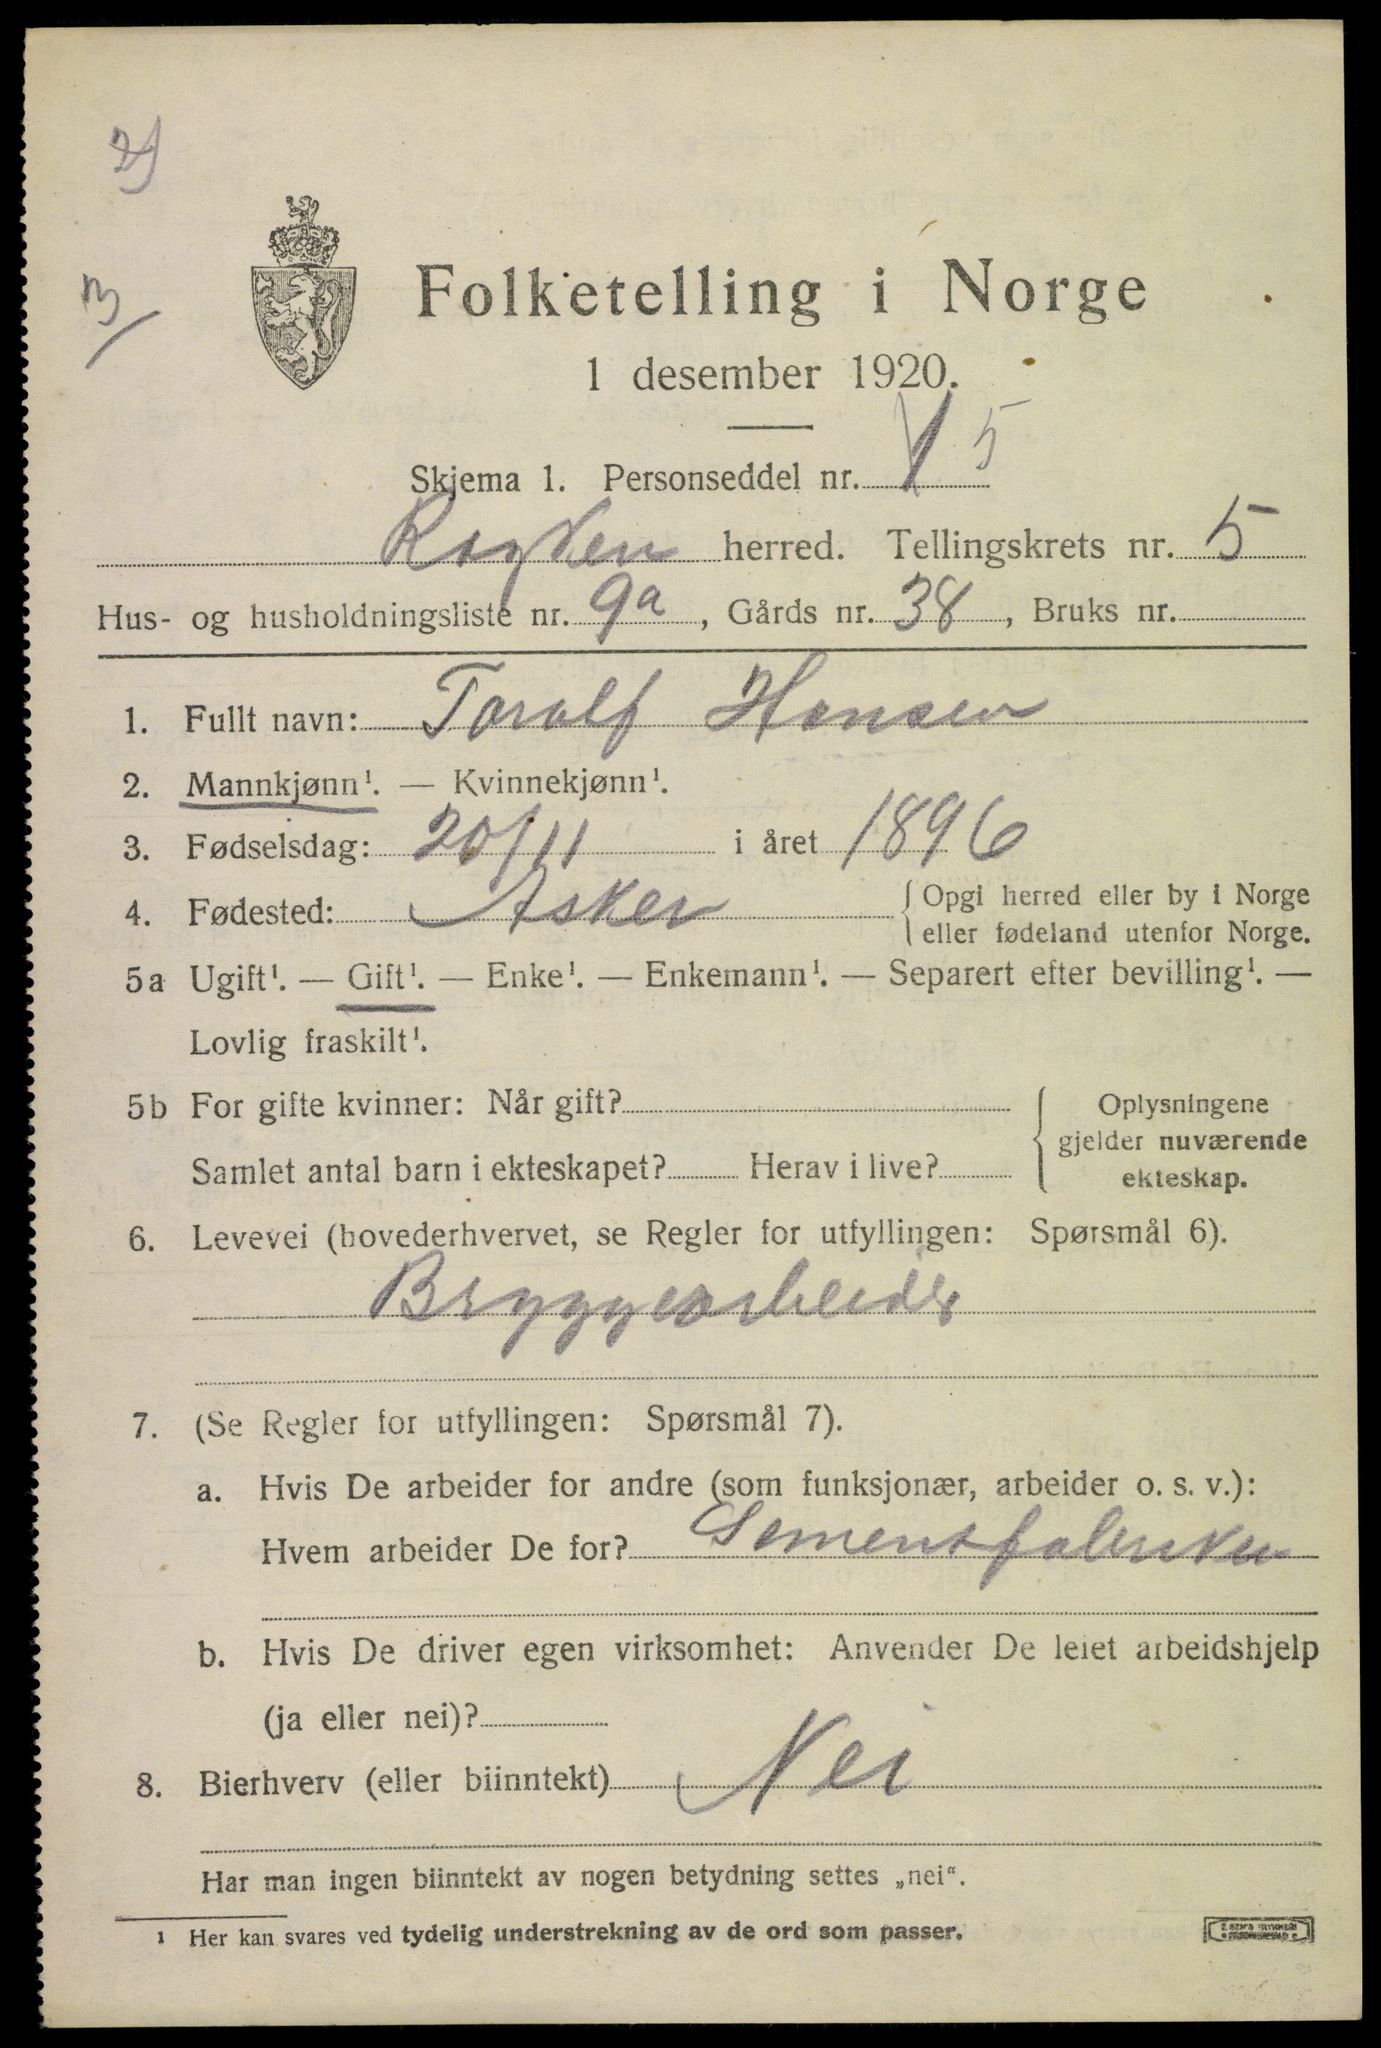 2)
3/
Folketelling i Norge
1 desember 1920.
Skjema 1. Personseddel nr. 1 5
Røyken herred. Tellingskrets nr. 5
Hus- og husholdningsliste nr. 9a, Gårds nr. 38, Bruks nr.
1. Fullt navn: Toralf Hansen
2. Mannkjønn¹. — Kvinnekjønn¹.
3. Fødselsdag: 20/11 i året 1896
4. Fødested: Asker { Opgi herred eller by i Norge
eller fødeland utenfor Norge.
5a Ugift¹. — Gift¹. — Enke¹. — Enkemann¹. — Separert efter bevilling¹. —
Lovlig fraskilt¹.
5b For gifte kvinner: Når gift? { Oplysningene
gjelder nuværende
Samlet antal barn i ekteskapet? Herav i live? ekteskap.
6. Levevei (hovederhvervet, se Regler for utfyllingen: Spørsmål 6).
Bryggearbeider
7. (Se Regler for utfyllingen: Spørsmål 7).
a. Hvis De arbeider for andre (som funksjonær, arbeider o. s. v.):
Hvem arbeider De for? Sementfabriken
b. Hvis De driver egen virksomhet: Anvender De leiet arbeidshjelp
(ja eller nei)?
8. Bierhverv (eller biinntekt) Nei
Har man ingen biinntekt av nogen betydning settes „nei“.
¹ Her kan svares ved tydelig understrekning av de ord som passer.